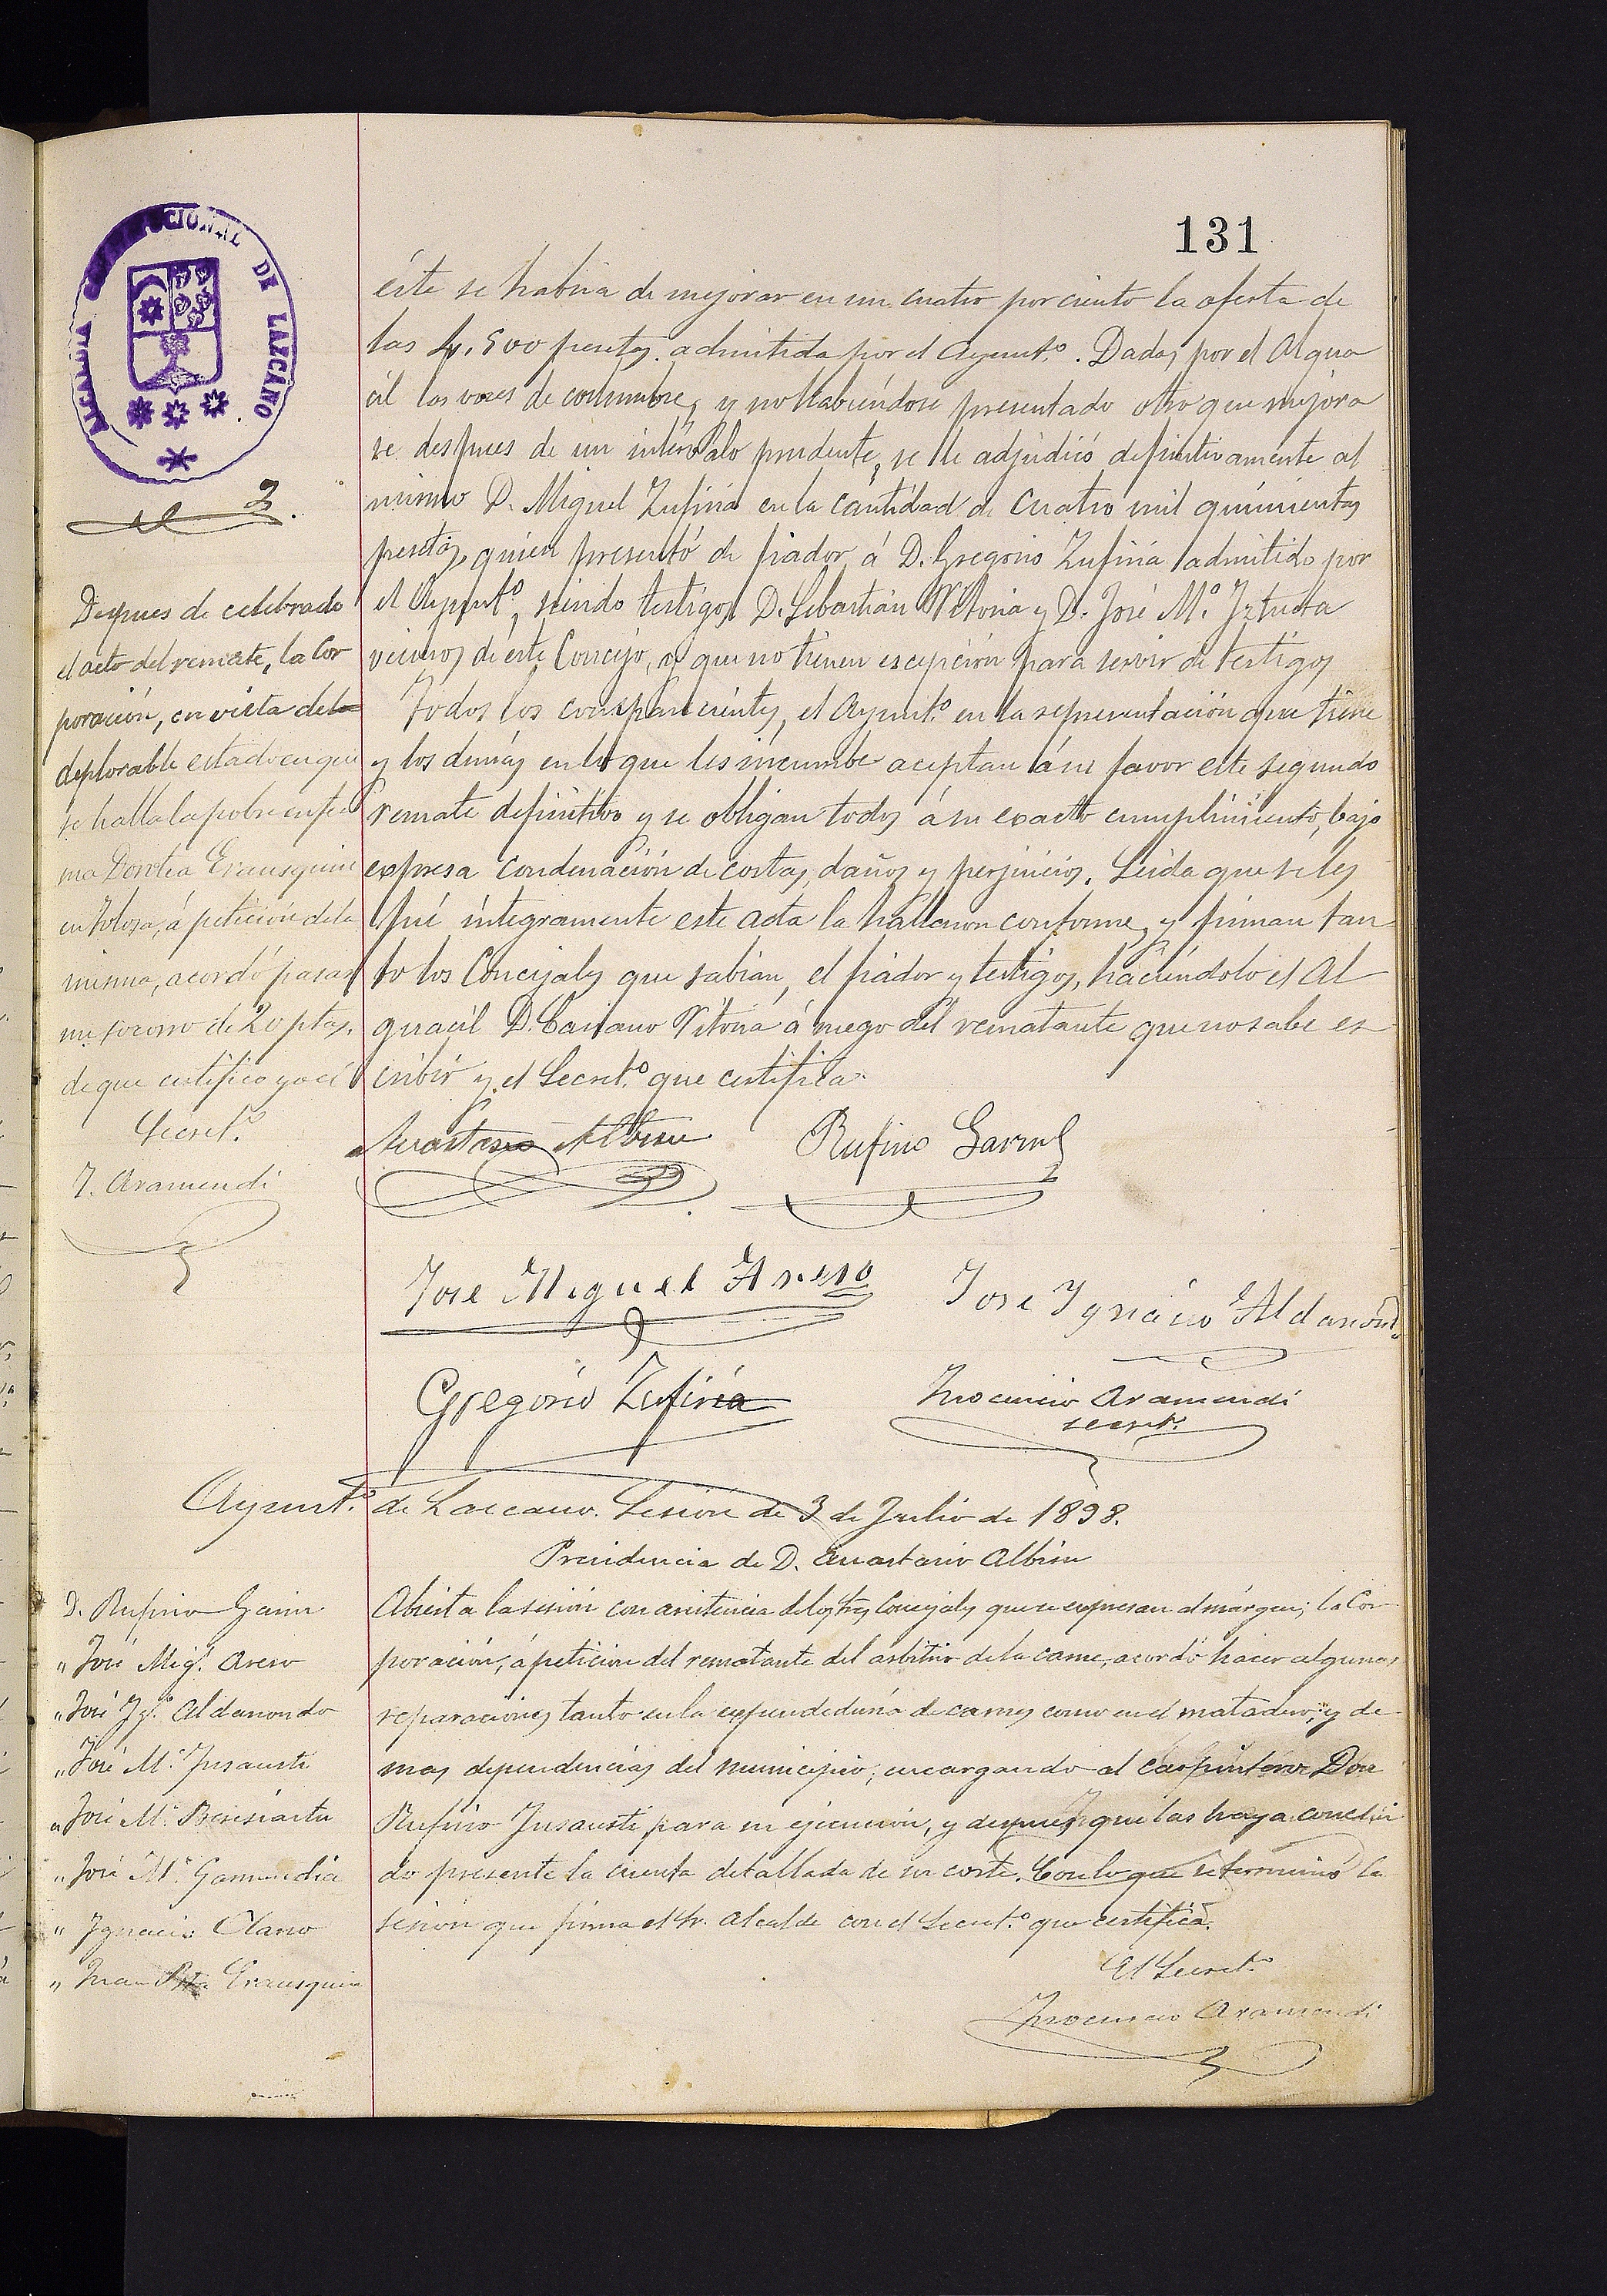 131
ALCALDIA CONSTITUCIONAL DE LAZCANO
éste se habria de mejorar en un cuatro por ciento la oferta de
las 4.500 pesetas admitida por el Ayunt.º. Dadas por el Algua
cil las voces de costumbre, y no habiéndose presentado otro que mejora
se despues de un intérvalo prudente, se le adjudicó definitivamente al
mismo D. Miguel Zufiria en la cantidad de cuatro mil quinientas
pesetas, quien presentó de fiador á D. Gregorio Zufiria admitido por
el Ayunt.º, siendo testigos D. Sebastián Vitoria y D. José M.ª Iztueta
vecinos de éste Concejo, y que no tienen escepción para servir de testigos
Todos los comparecientes, el Ayunt.º en la representación que tiene
y los demás en lo que les incumbe aceptan á su favor este segundo
remate definitivo y se obligan todos á su exacto cumplimiento, bajo
expresa condenación de costas, daños y perjuicios. Leida que se les
fué integramente este acta la hallaron conforme, y firman tan
to los Concejales que sabian, el fiador y testigos, haciéndolo el Al
guacil D. Casiano Vitoria á ruego del rematante que no sabe es
cribir y el Secret.º que certifica.
Despues de celebrado
el acto del remate, la Cor
poración, en vista del
deplorable estado en que
se halla la pobre enfer
ma Dorotea Erausquin
en Tolosa, á petición de la
misma, acordó pasar
un socorro de 20 ptas,
de que certifico yo el
Secret.º
I. Aramendi
Anastasio Albisu
Rufino Garin
José Miguel Areso
José Ygnacio Aldanondo
Gregorio Zufiria
Inocencio Aramendi
secret.º
Ayunt.º de Lazcano. Sesión de 3 de Julio de 1898.
Presidencia de D. Anastasio Albisu
D. Rufino Garin
" José Mig.l Areso
" José Ig.º Aldanondo
" José M.ª Insausti
" José M.ª Beresiartu
" José M.ª Garmendia
" Ygnacio Olano
" Juan Bta Erausquin
Abierta la sesión con asistencia de los Srs Concejales que se expresan al márgen; la Cor
poración, á petición del rematante del arbitrio de la carne, acordó hacer algunas
reparaciones tanto en la expendeduria de carnes como en el matadero, y de
mas dependencias del municipio, encargando al carpintero Don
Rufino Insausti para su ejecución, y después que las haya conclui
do presente la cuenta detallada de su coste. Con lo que se terminó la
sesion que firma el Sr. Alcalde con el Secret.º que certifica.
El Secret.º
Inocencio Aramendi